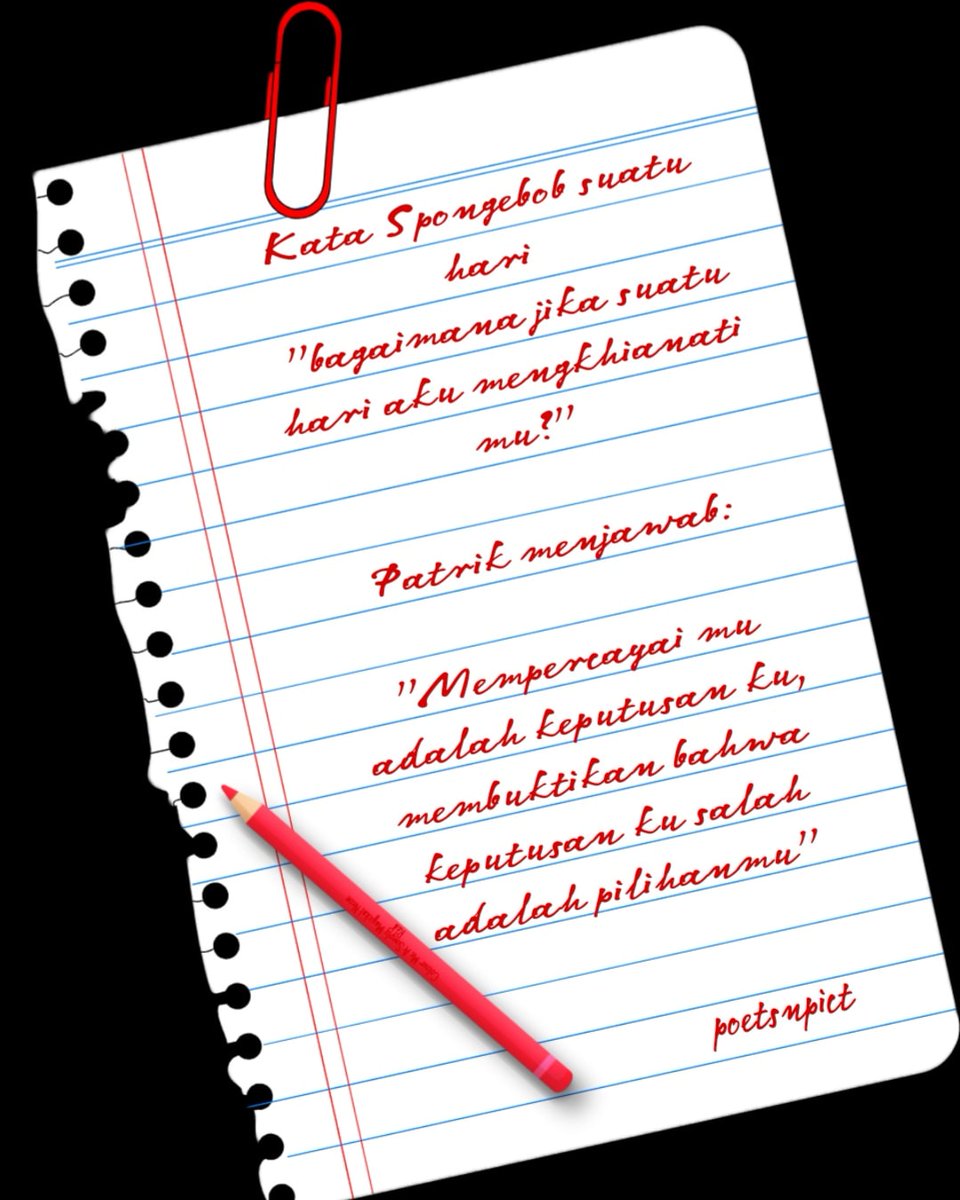 Kata Spongebob suatu
hari
"bagaimana jika suatu
hari aku mengkhianati
mu?"
Patrik menjawab:
"Mempercayai mu
adalah keputusan ku,
membuktikan bahwa
keputusan ku salah
adalah pilihanmu"
poetsnpict